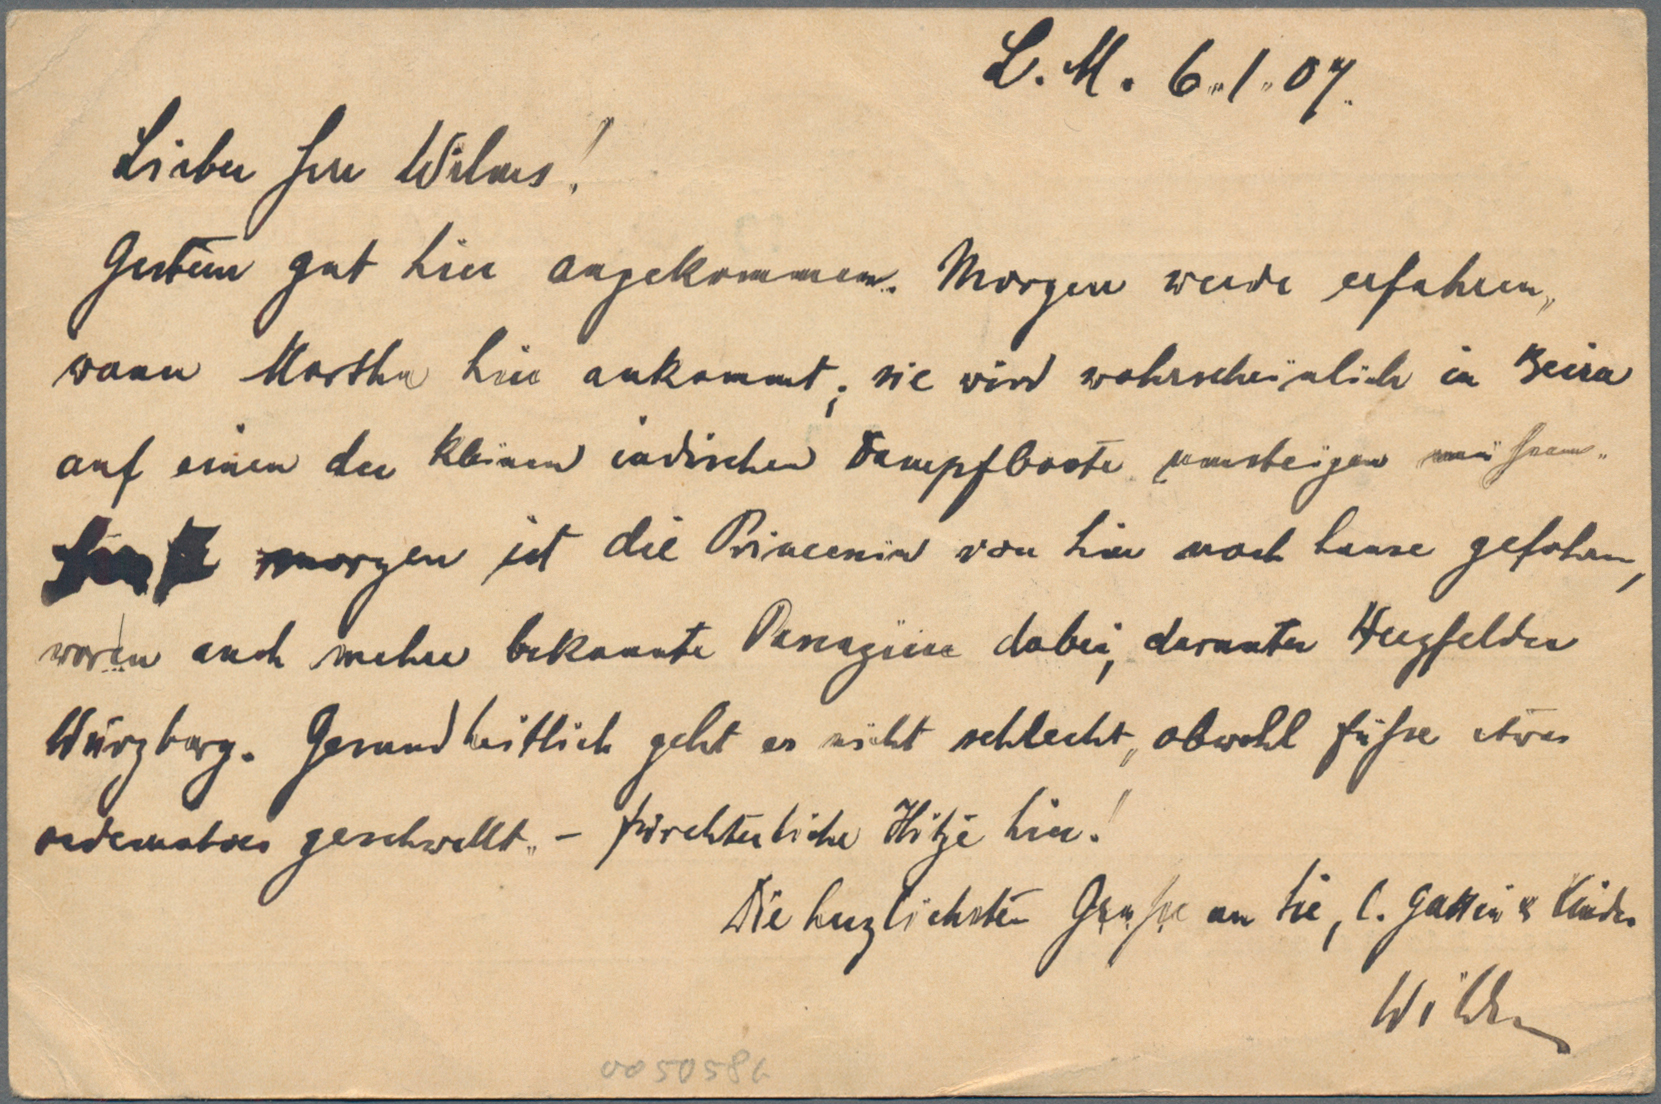 L. M. 6.1.07.
Lieber Herr Wilms!
Gestern gut hier angekommen. Morgen werde erfahren,
wann Martha hier ankommt; sie wird wahrscheinlich in Beira
auf einen der kleinen indischen Dampfboote umsteigen müssen.
morgen ist die von hier nach hause gefahren,
waren auch mehre bekannte dabei, darunter
Würzburg. Gesundheitlich geht es nicht schlecht, obwohl füße etwas
oedematoes geschwellt. – fürchterliche Hitze hier!
Die herzlichsten Grüße an Sie, l. Gattin & Kinder
005058